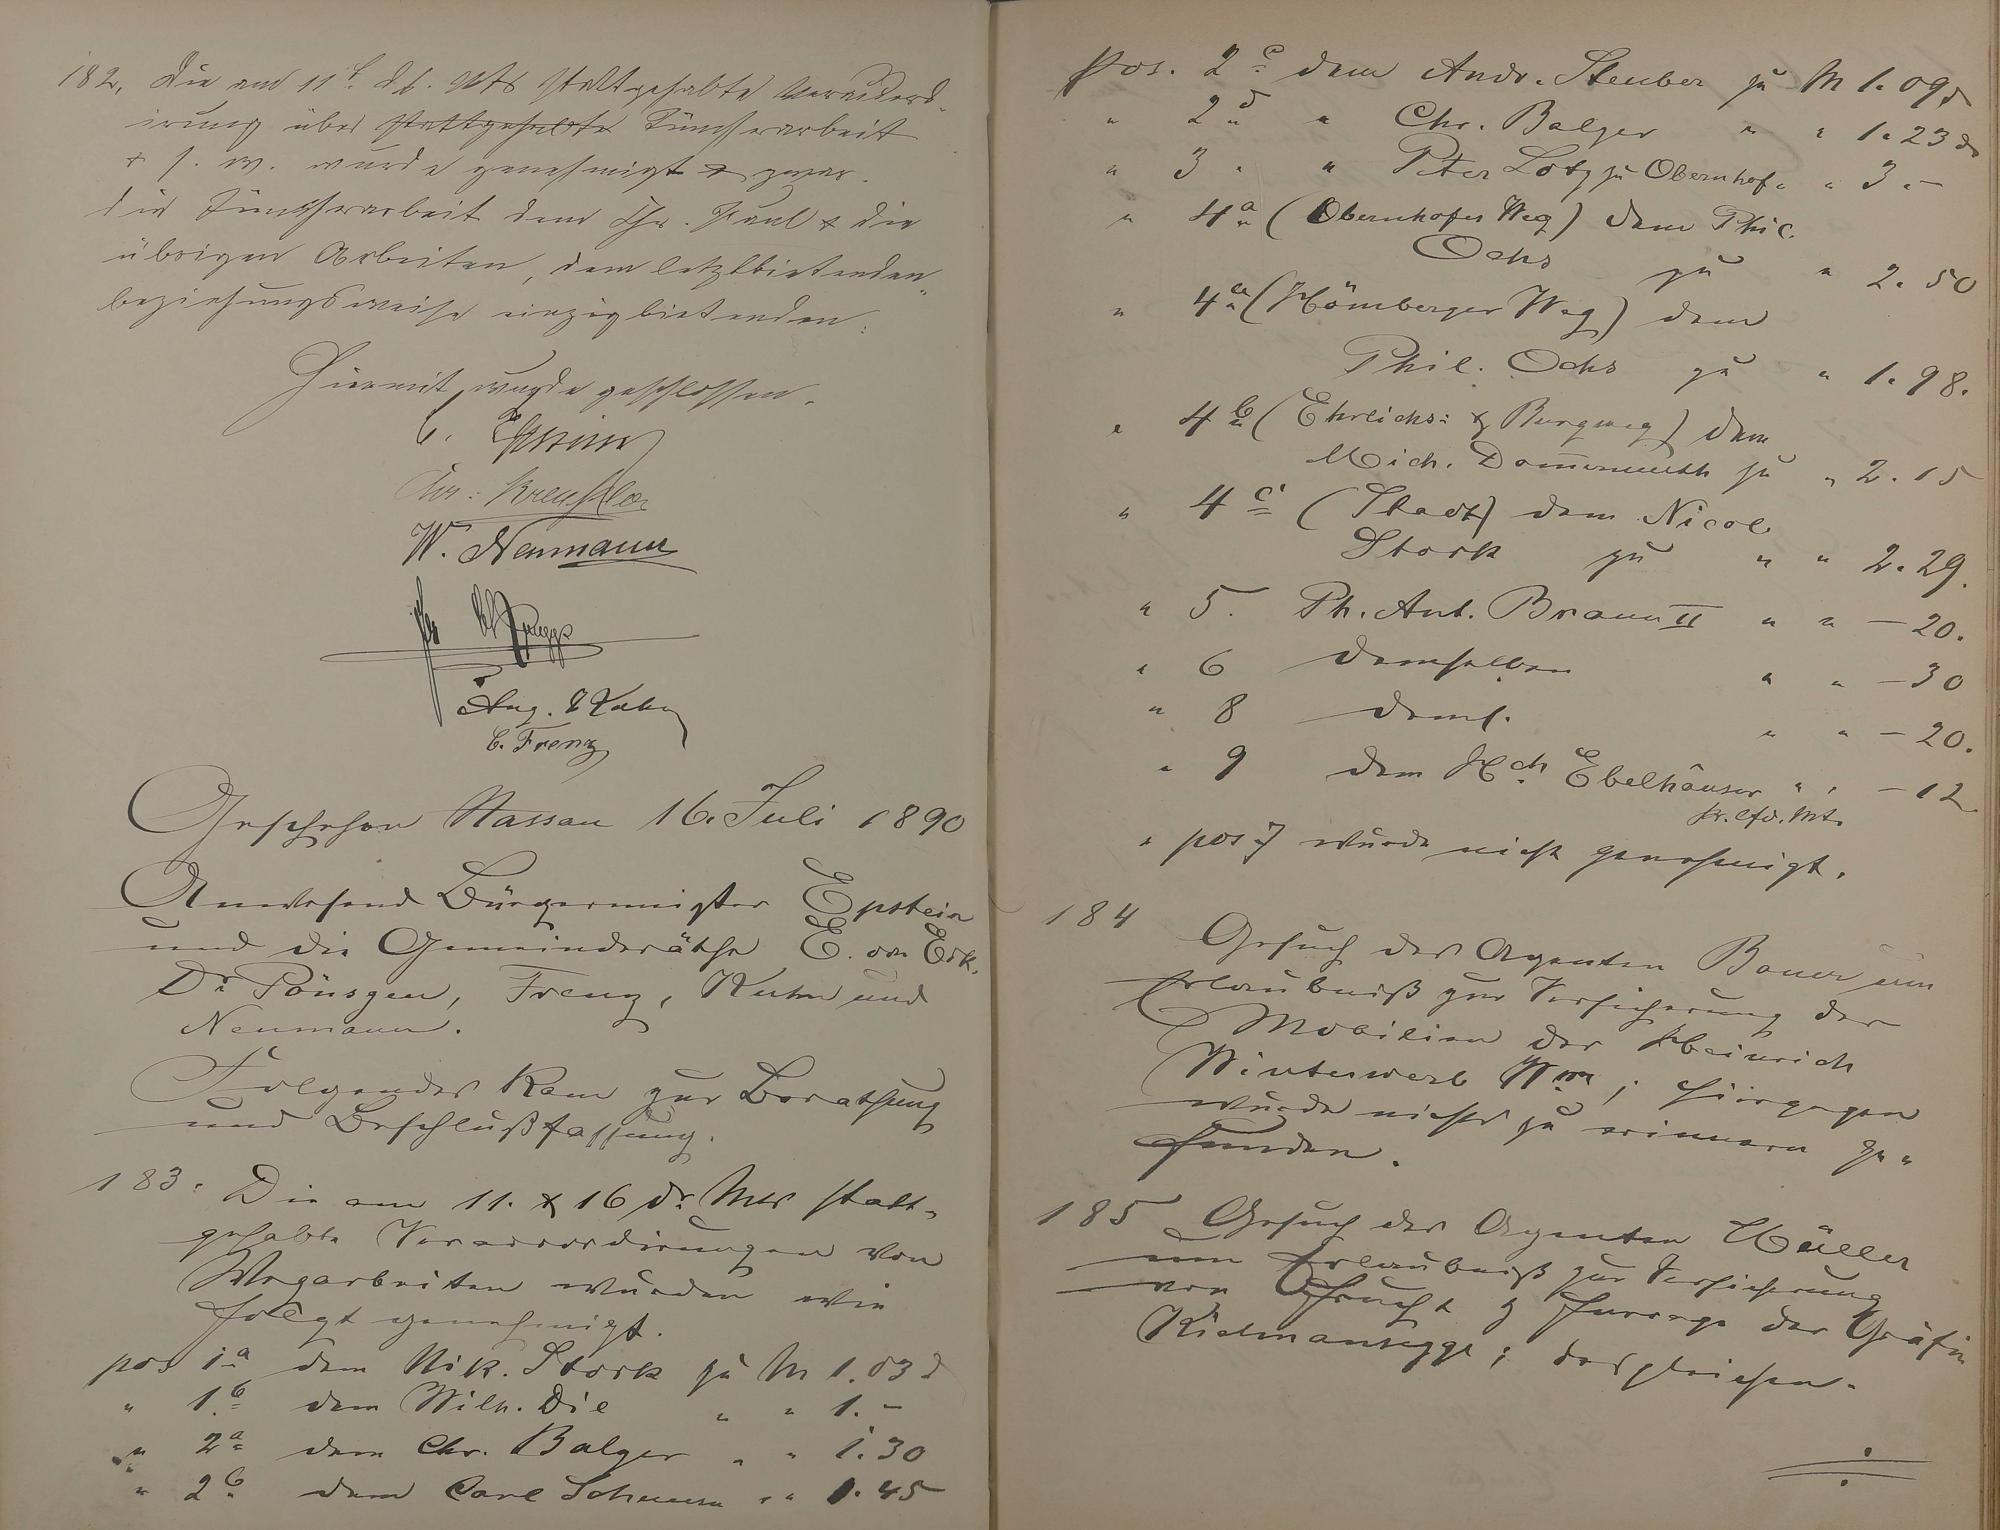 182, Die am 11t. ds. Mts stattgehabte Veraccord-
irung über stattgehabte Tüncherarbeit
& s. w. wurde genehmigt & zwar.
die Tüncherarbeit dem Chr. Paul & die
übrigen Arbeiten, dem letztbietenden
beziehungsweise einzigbietenden.
Hiermit wurde geschlossen.
E. Epstein
Chr. Kreußler
W. Neumann
Aug. Kuhn
C. Frenz
Geschehen Nassau 16. Juli 1890
Anwesend Bürgermeister Epstein
und die Gemeinderäthe E. von Eck,
Dr Pönsgen, Frenz, Kuhn und
Neumann.
Folgendes kam zur Berathung
und Beschlußfassung.
183. Die am 11. & 16 ds Mts statt-
gehabte Veraccordirungen von
Wegarbeiten wurden wie
folgt genehmigt.
pos 1a dem Nik. Stork zu M 1.03 d
" 1b dem Wilh. Die " " 1.-
" 2a dem Chr. Balzer " " 1.30
" 2b dem Carl " " 1.45
pos. 2c dem Andr. Steuber zu M 1.09 d
" 2d " Chr. Balzer " " 1.23 d
" 3 " " Peter Lotz zu Obernhof " " 3.-
" 4a (Obernhofer Weg) dem Phil.
Ochs zu " 2.50
" 4a (Hömberger Weg) dem
Phil. Ochs zu " 1.98.
" 4b (Ehrlichs: & Burgweg) dem
Mich. Dom̅ermuth zu " 2.15
" 4c (Stadt) dem Nicol.
Stork zu " " 2.29.
" 5. Ph. Ant. Braun II " " -20.
" 6 demselben " " -30
" 8 dems. " " -20.
" 9 dem Hch Ebelhäuser " " -12
pr. lfd. Mt.
" pos 7 wurde nicht genehmigt.
184 Gesuch des Agenten Bauer um
Erlaubniß zur Versicherung der
Mobilien der Heinrich
Winterwerb Wwe; hiergegen
wurde nichts zu erinnern ge-
funden.
185 Gesuch des Agenten Müller
um Erlaubniß zur Versicherung
von Frucht & Furrage der Gräfin
Kielmansegge; desgleichen.